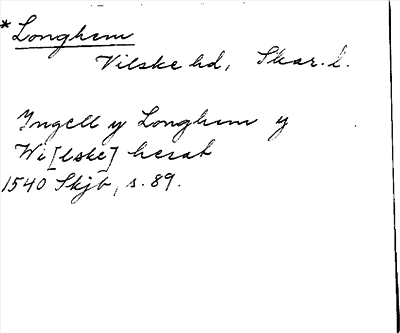 *Longhem
Vilske hd, Skar. l.
Ingell y Longhem y
Wi[lske] herat
1540 Skjb, s. 89.